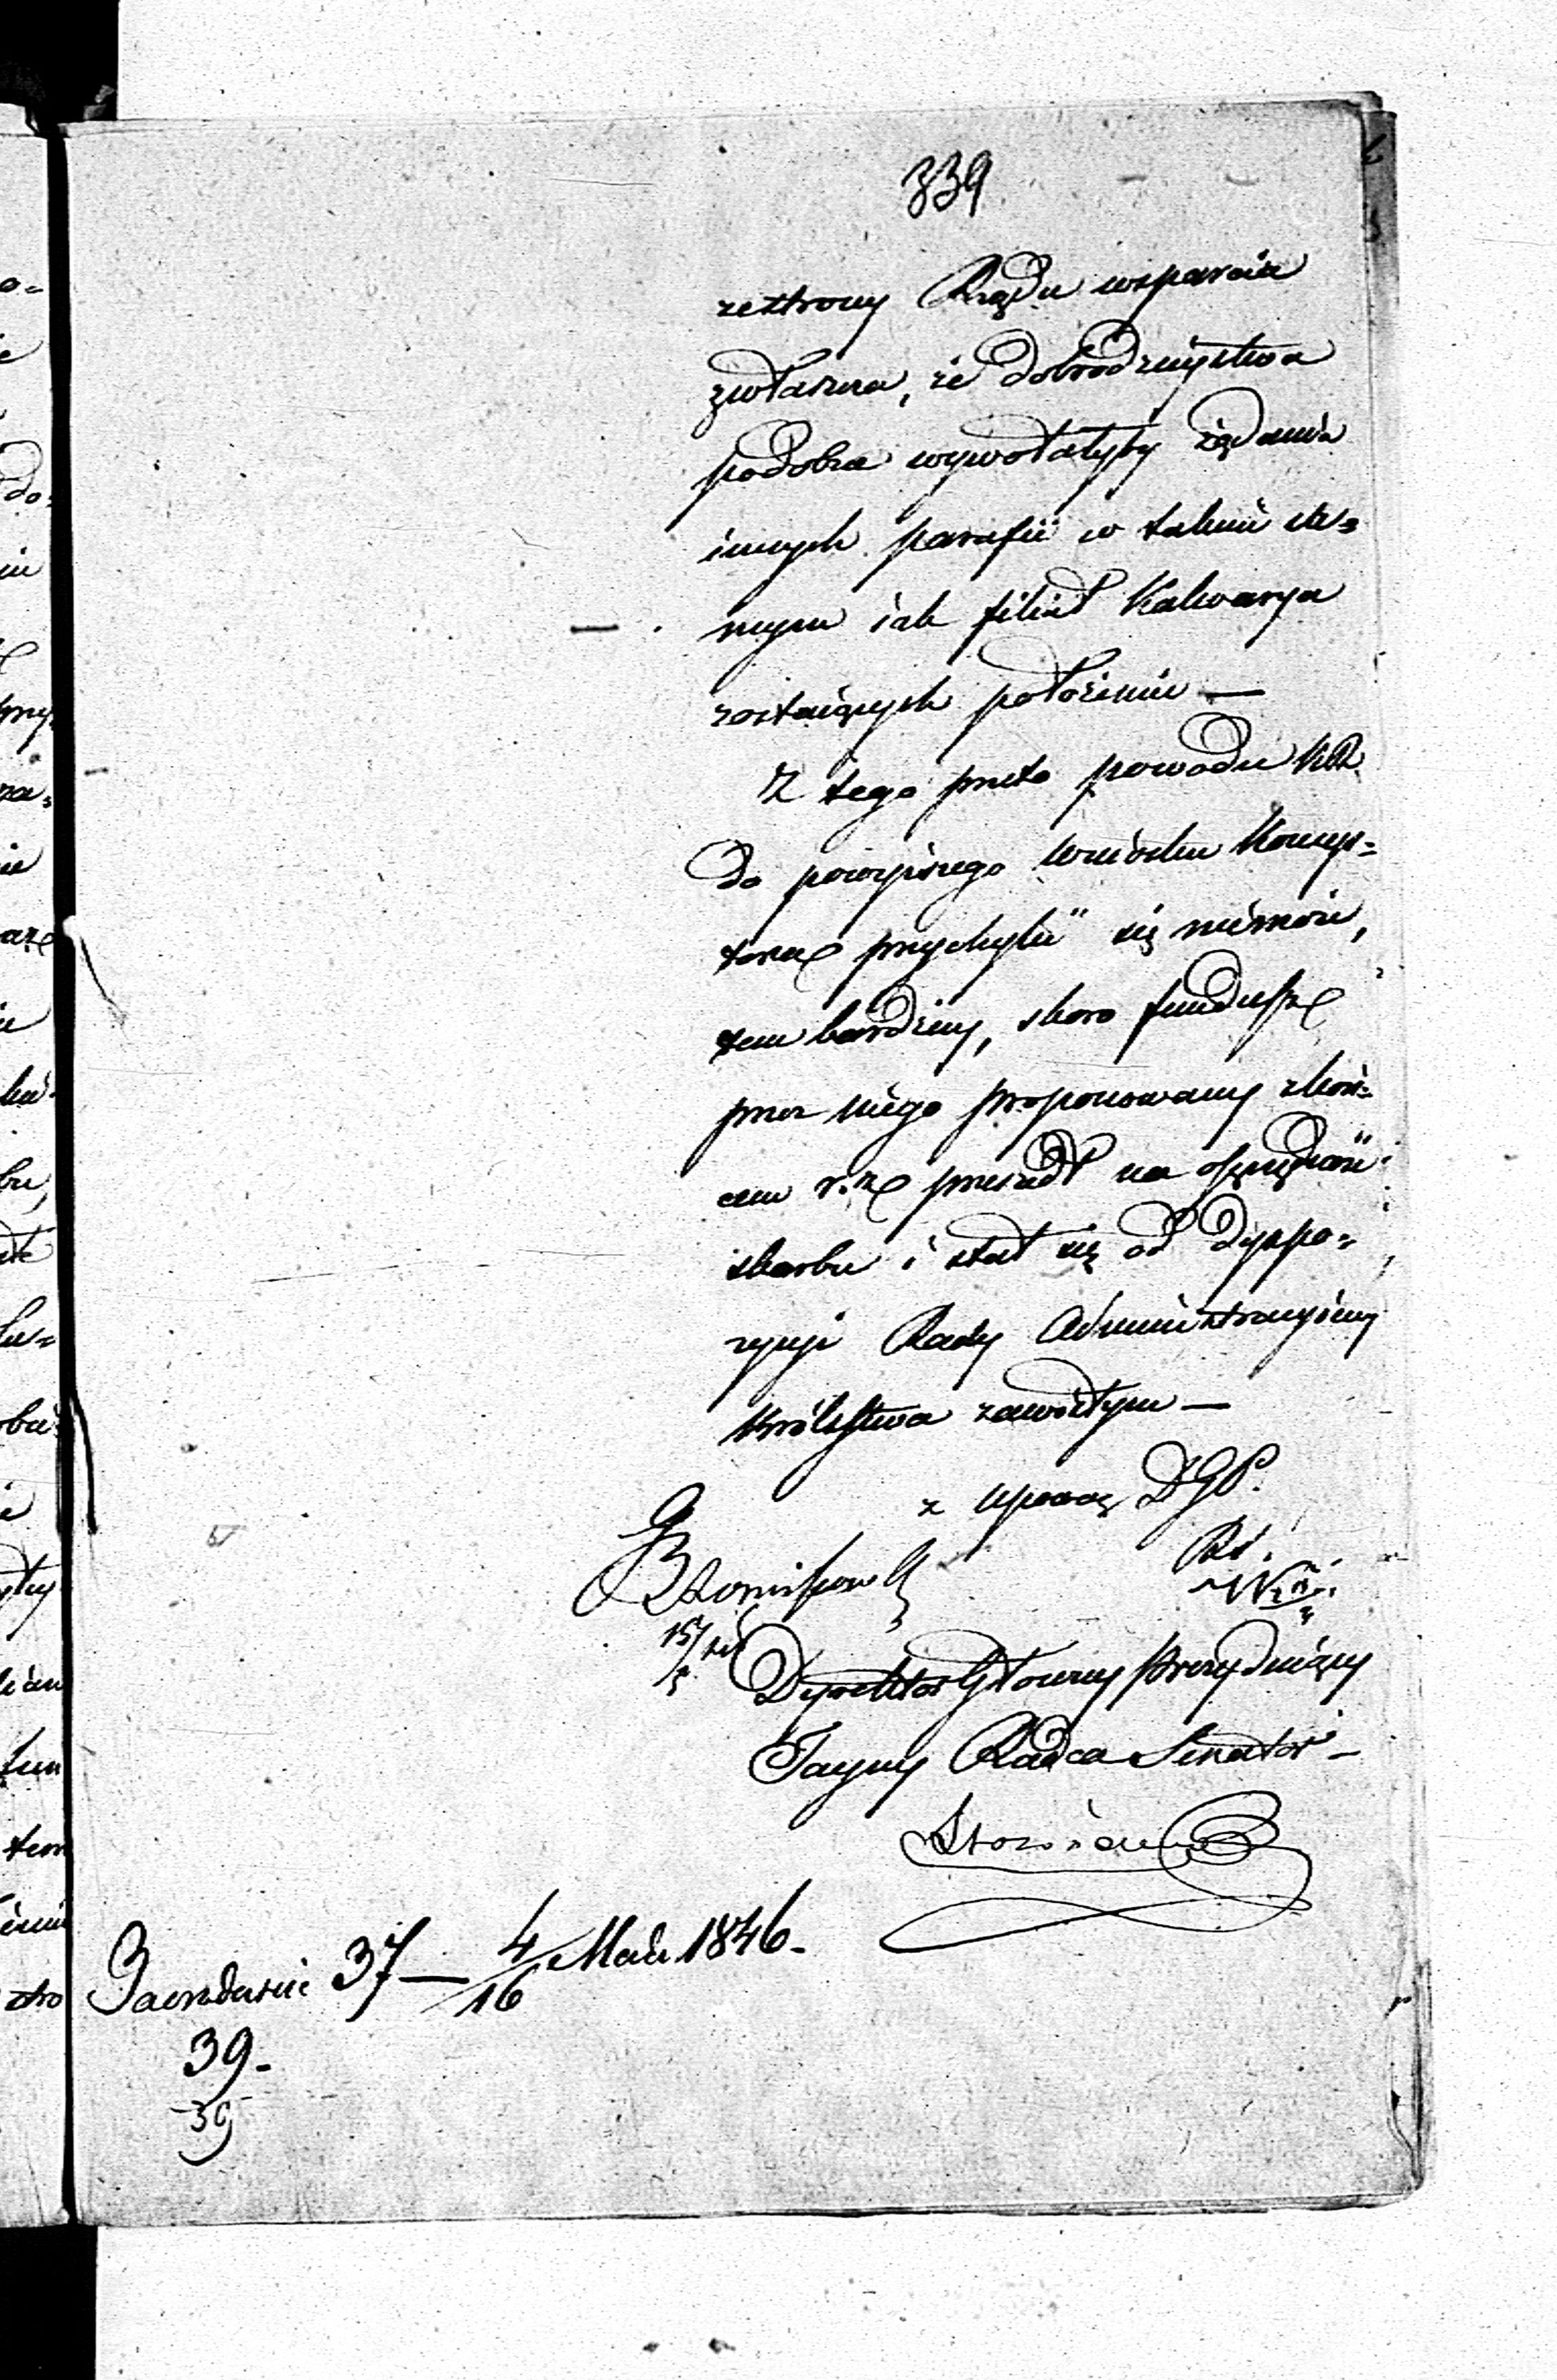 339
ze strony Rządu wsparcia
zwłaszcza, że dobrodzieystwa
podobne wywołałyby żądania
innych parafii w takim sa=
mym iak filiał Kalwarya
zostaiących położeniu —
Z tego przeto powodu KR
do powyższego wniosku Konsys=
torza przychylić się niemoże,
tem bardziey, skoro fundusz
przez niego proponowany z koń=
cem r. z. przeszedł na oszczędność
skarbu i stał się od dyspo=
zycyi Rady Administracyiney
Królestwa zawisłym —
z upoważ DGP.
Dyrektor Główny Prezyduiący
Tayny Radca Senator —
37 — 4/16 Maia 1846.
39.
39